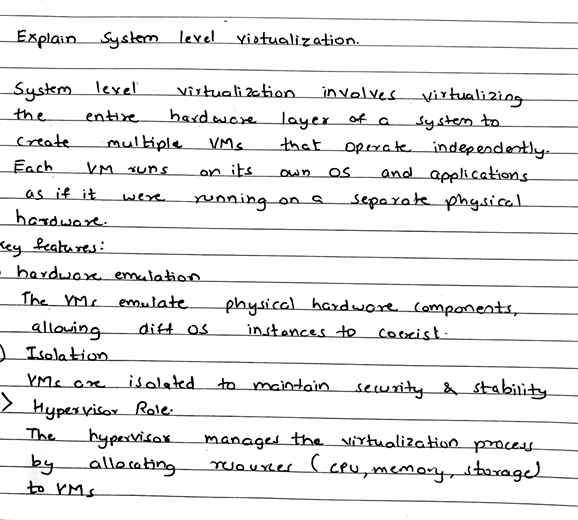 Explain System level virtualization.
System level virtualization involves virtualizing
the entire hardware layer of a system to
create multiple VMs that operate independently.
Each VM runs on its own OS and applications
as if it were running on a separate physical
hardware.
key features:
hardware emulation
The VMs emulate physical hardware components,
allowing diff OS instances to coexist.
) Isolation
VMs are isolated to maintain security & stability
> Hypervisor Role.
The hypervisor manages the virtualization process
by allocating resources (CPU, memory, storage)
to VMs